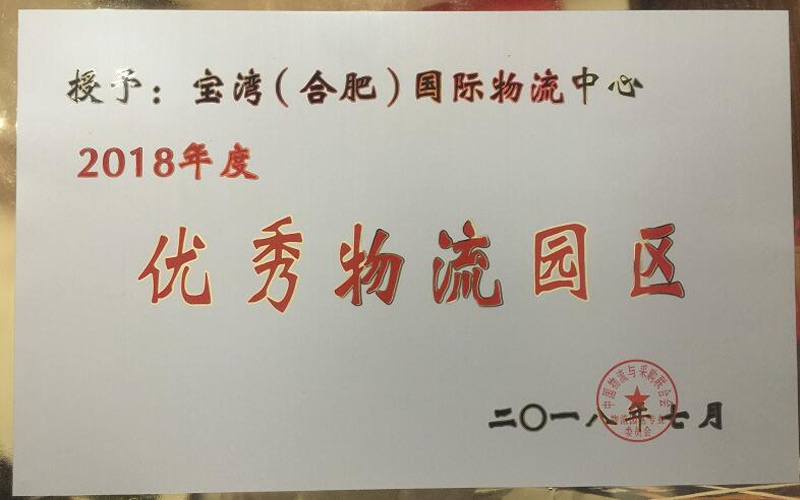 授予：宝湾（合肥）国际物流中心
2018年度
优秀物流园区
中国物流与采购联合会
委员会
二〇一八年七月